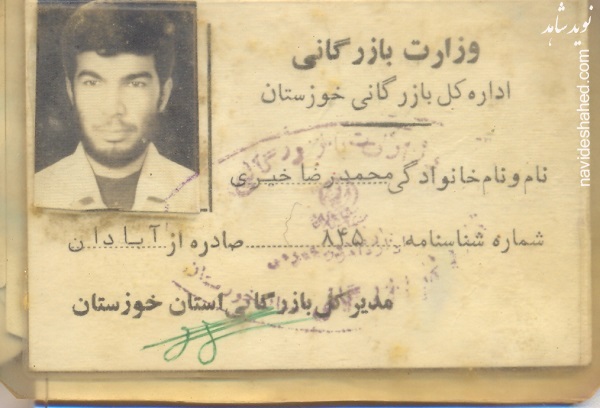 وزارت بازرگانی
اداره کل بازرگانی خوزستان
نام و نام خانوادگی محمدرضا خیری
شماره شناسنامه ۸۴۵ صادره از آبادان
مدیر کل بازرگانی استان خوزستان
نوید شاهد
navideshahed.com